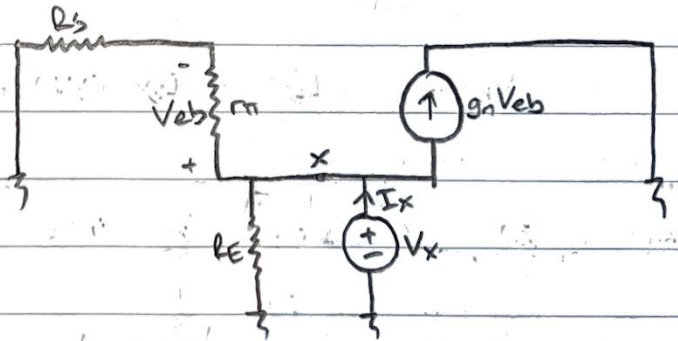 Rs
-
Veb rπ gmVeb
+
x
Ix
RE + Vx
-